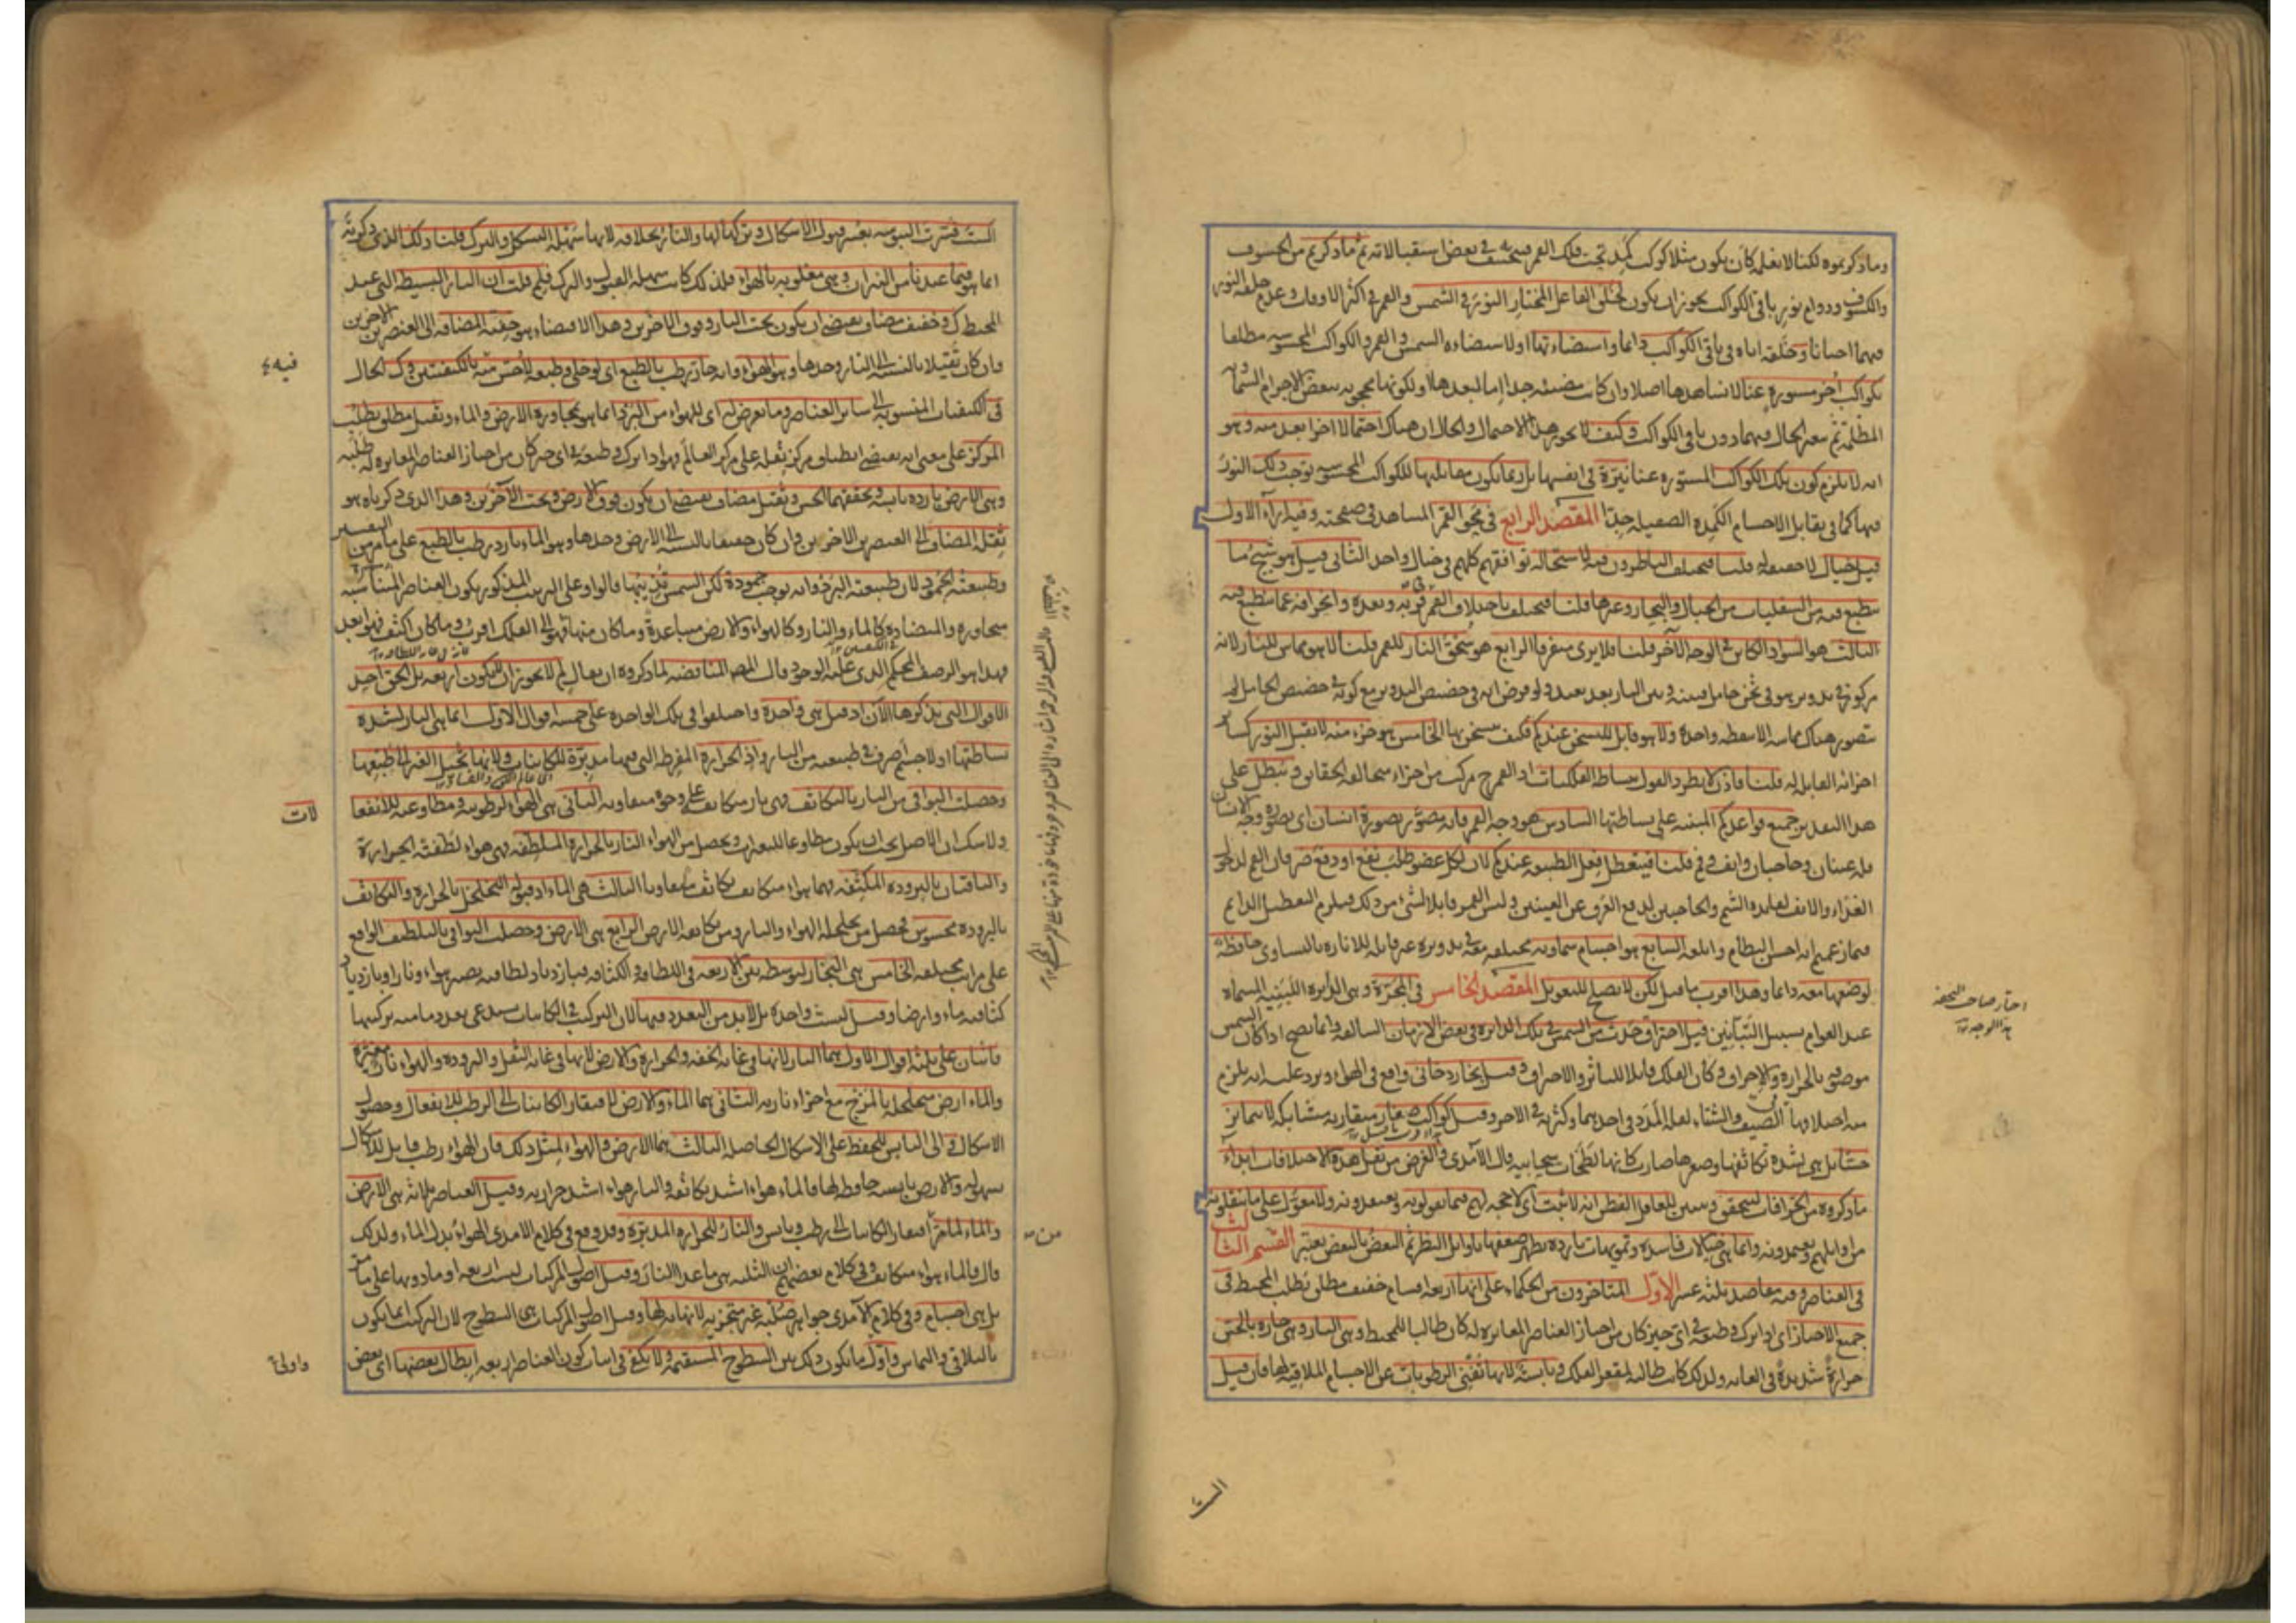 وما ذكرتموه لكنا لا نعلمه كان يكون مثلا كوكب كمد تحت فلك القمر فيخسفه في بعض استقبالاته ثم ما ذكرتم من الخسوف
والكسوف ودوام نور باقي الكواكب يجوز ان يكون لخلق الفاعل المختار النور في الشمس والقمر في اكثر الاوقات وعدم خلقه النور
فيهما احيانا وخلقه اياه في باقي الكواكب دائما واستضاءتها اولا استضاءة الشمس والقمر والكواكب المحسوسة مطلقا
بكواكب اخر مستورة عنا لا نشاهدها اصلا وان كانت مضيئة جدا اما لبعدها او لكونها محجوبة ببعض الاجرام السماوية
المظلمة ثم سعة الحال فيهما دون باقي الكواكب وكيف لا يجوز هذا الاحتمال والحال ان هناك احتمالا اخر ابعد منه وهو
انه لا يلزم كون تلك الكواكب المستورة عنا نيرة في انفسها بل ربما يكون مقابلتها للكواكب المحسوسة توجب ذلك النور
فيها كما في تقابل الاجسام الكمدة الصقيلة جدا المقصد الرابع في محو القمر المشاهد في صفحته وفيه آراء الاول
قيل خيال لا حقيقة له قلنا فيختلف الناظرون فيه لاستحالة توافقهم كلهم في خيال واحد الثاني قيل هو شبح ما
ينطبع فيه من السفليات من الجبال والبحار وغيرها قلنا فيختلف باختلاف القمر في قربه وبعده وانحرافه عما ينطبع فيه
الثالث هو السواد الكائن في الوجه الآخر قلنا فلا يرى متفرقا الرابع هو سحق النار للقمر قلنا لا هو مماس للنار لانه
مركوز في تدوير هو في ثخن حامل فبينه وبين النار بعد بعيد ولو فرض انه في حضيض التدوير مع كونه في حضيض الحامل لم
يتصور هناك مماسة الا بنقطة واحدة ولا هو قابل للتسخن عندكم فكيف يتسخن بها الخامس هو جزء منه لا يقبل النور كسائر
اجزائه القابلة له قلنا فاذن لا يطرد القول ببساطة الفلكيات اذ القمر ح مركب من اجزاء متخالفة الحقائق ويبطل على
هذا التقدير جميع قواعدكم المبنية على بساطتها السادس هو وجه القمر فانه مصور بصورة انسان اي بصورة وجه الانسان
فله عينان وحاجبان وانف وفم قلنا فيتعطل فعل الطبيعة عندكم لان لكل عضو طلب نفع او دفع ضر فان الفم لدخول
الغذاء والانف لفائدة الشم والحاجبين لدفع العرق عن العينين وليس القمر قابلا لشيء من ذلك فيلزم التعطيل الدائم
فيما زعمتم انه احسن النظام وابلغه السابع هو اجسام سماوية مختلفة معه في تدويره غير قابلة للانارة بالتساوي حافظة
لوضعها معه دائما وهذا اقرب ما قيل لكن لا يصلح للتعويل المقصد الخامس في المجرة وهي الدائرة اللبنية المسماة
عند العوام بسبيل التبانين قيل احتراق حدث من الشمس في تلك الدائرة في بعض الازمان السالفة وانما يصح اذا كان الشمس
موصوفة بالحرارة والاحراق وكان الفلك قابلا للتأثر والاحتراق وقيل بخار دخاني واقع في الهواء ويرد عليه انه يلزم
منه اختلافها في الصيف والشتاء لقلة المدد في احدهما وكثرته في الآخر وقيل كواكب صغار متقاربة متشابكة لا تتمايز
حسا بل هي لشدة تكاثفها وصغرها صارت كانها لطخات سحابية قال الآمدي والغرض من نقل هذه الاختلافات ابداء
ما ذكروه من الخرافات ليتحقق ويتبين للعاقل الفطن انه لا ثبت اي لا حجة لهم فيما يقولونه ويعتقدونه ولا معول على ما ينقلونه
من اوائلهم ويعتمدونه وانما هي خيالات فاسدة وتمويهات باردة يظهر ضعفها باوائل النظر ثم البعض بالبعض يعتبر القسم الثالث
في العناصر وفيه مقاصد ثلثة عشر الاول المتاخرون من الحكماء على انها اربعة اقسام خفيف مطلق يطلب المحيط في
جميع الاحياز اي اذا ترك وطبعه في اي حيز كان من احياز العناصر المغايرة له كان طالبا للمحيط وهي النار وهي حارة بالحس
حرارة شديدة في الغاية ولذلك كانت طالبة لمقعر الفلك ويابسة لانها تفنى الرطوبات عن الاجسام الملاقية لها فان قيل
اختار صاحب التحفة
هذا الوجه
الست
الست فسرت اليبوسة بعسر قبول الاشكال وتركها لها والنار بخلافه لانها سهلة التشكل والترك قلنا ذلك الذي ذكرته
انما هو فيما عندنا من النيران وهي مغلوبة بالهواء فلذلك كانت سهلة القبول والترك فلم قلت ان النار البسيطة التي عند
المحيط كذلك وخفيف مضاف يقتضي ان يكون تحت النار وفوق الآخرين وهذا الاقتضاء هو خفته المضافة الى العنصرين الآخرين
وان كان ثقيلا بالنسبة الى النار وحدها وهو الهواء وانه حار رطب بالطبع اي لو خلي وطبعه لاحس منه بالكيفيتين وكذلك الحال
في الكيفيات المنسوبة الى سائر العناصر وما يعرض له اي للهواء من البرد انما هو بمجاورة الارض والماء وثقيل مطلق يطلب
المركز على معنى انه يقتضي انطباق مركز ثقله على مركز العالم فهو اذا ترك وطبعه في اي حيز كان من احياز العناصر المغايرة له طلبه
وهي الارض باردة يابسة ويحققهما الحس وثقيل مضاف يقتضي ان يكون فوق الارض وتحت الآخرين وهذا الذي ذكرناه هو
ثقله المضاف الى العنصرين الآخرين وان كان خفيفا بالنسبة الى الارض وحدها وهو الماء بارد رطب بالطبع على ما مر من التفسير
وطبيعته الجمود لان طبيعته البرد وانه يوجب جمودة لكن الشمس تذيبها قالوا وعلى الترتيب المذكور يكون العناصر المتناسبة
متجاورة والمتضادة كالماء والنار وكالهواء والارض متباعدة وما كان منها فهو الى الفلك اقرب وما كان اكثف فهو ابعد
فهذا هو الرصف المحكم الذي عليه الوجود قال المص المناقضة لما ذكروه ان يقال لم لا يجوز ان لا يكون اربعة بل الحق احد
الاقوال التي نذكرها الآن اذ قيل هي واحدة واختلفوا في تلك الواحدة على خمسة اقوال الاول انما هي النار لشدة
بساطتها اولا جسم اصرف في طبيعته من النار واذ الحرارة المفرطة التي فيها مدبرة للكائنات ولانها تحيل الغير الى طبعها
وحصلت البواقي من النار بالتكاثف فهي نار متكاثفة على وجوه متفاوتة الثاني هي الهواء لرطوبته ومطاوعته للانفعا
ولا شك ان الاصل يجب ان يكون مطاوعا للتغيرات ويحصل من الهواء النار بالحرارة الملطفة فهي هواء لطفته الحرارة
والباقيتان بالبرودة المكثفة فهما هواء متكاثف تكاثفا متفاوتا الثالث هي الماء اذ قبوله التخلخل بالحرارة والتكاثف
بالبرودة محسوس فيحصل من تخلخله الهواء والنار ومن تكاثفه الارض الرابع هي الارض وحصلت البواقي بالتلطيف الواقع
على مراتب مختلفة الخامس هي البخار لتوسطه بين الاربعة في اللطافة والكثافة فبازدياد لطافته يصير هواء ونارا وبازدياد
كثافته ماء وارضا وقيل ليست واحدة بل لا بد من التعدد فيها لان التركيب في الكائنات يستدعي تعدد ما منه تركيبها
فاثنان على ثلثة اقوال الاول هما النار لانها في غاية الخفة والحرارة والارض لانها في غاية الثقل والبرودة والهواء نار مفترة
والماء ارض متخلخلة بالمزج مع اجزاء نارية الثاني هما الماء والارض لافتقار الكائنات الى الرطب للانفعال وحصول
الاشكال والى اليابس للحفظ على الاشكال الحاصلة الثالث هما الارض والهواء لمثل ذلك فان الهواء رطب قابل للاشكال
بسهولة والارض يابسة حافظة لها فالماء هواء اشتد تكاثفه والنار هواء اشتد حرارته وقيل العناصر ثلاثة هي الارض
والماء لما مر من افتقار الكائنات الى رطب ويابس والنار للحرارة المدبرة وقد وقع في كلام الآمدي الهواء بدل الماء ولذلك
قال والماء هواء متكاثف وفي كلام بعضهم ان الثلثة هي ما عدا النار وقيل اصول المركبات ليست اربعة او ما دونها على ما مر
بل هي اجسام وفي كلام الآمدي جواهر صلبة غير متجزية لا نهاية لها وقيل اصول المركبات هي السطوح لان التركيب انما يكون
بالتلاقي والتماس واول ما يكون ذلك بين السطوح المستقيمة ولا يكفي في اثبات كون العناصر اربعة ابطال بعضها اي بعض
فيه
لات
من
واولى